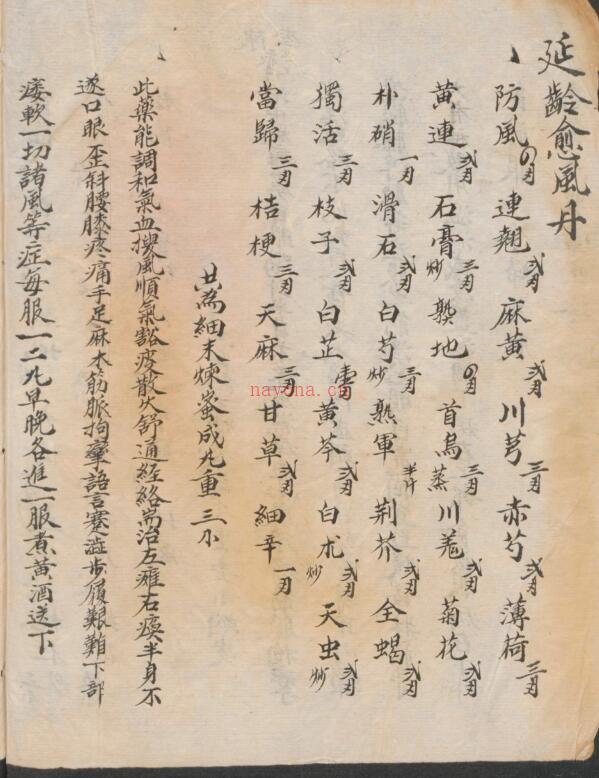 延齡愈風丹
防風 連翹 弍刄 麻黃 弍刄 川芎 三刄 赤芍 弍刄 薄荷 三刄
黄連 弍刄 石膏 炒 三刄 熟地 首烏 蒸 三刄 川羌 弍刄 菊花 弍刄
朴硝 一刄 滑石 弍刄 白芍 炒 三刄 熟軍 半斤 荆芥 弍刄 全蝎 弍刄
獨活 三刄 枝子 弍刄 白芷 黃芩 弍刄 白朮 炒 弍刄 天虫 炒 弍刄
當歸 三刄 桔梗 三刄 天麻 三刄 甘草 弍刄 細辛 一刄
共為細末煉蜜成丸重三小
此藥能調和氣血搜風順氣豁痰散火舒通經絡耑治左癱右瘓半身不
遂口眼歪斜腰膝疼痛手足麻木筋脈拘攣語言蹇澁步履艱難下部
痿軟一切諸風等症每服一二丸早晚各進一服煮黃酒送下
nayona.cn